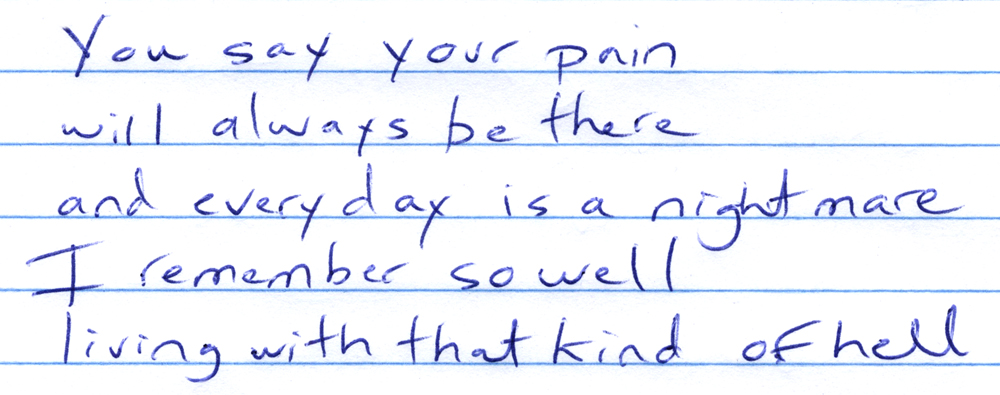 You say your pain
will always be there
and everyday is a nightmare
I remember so well
living with that kind of hell